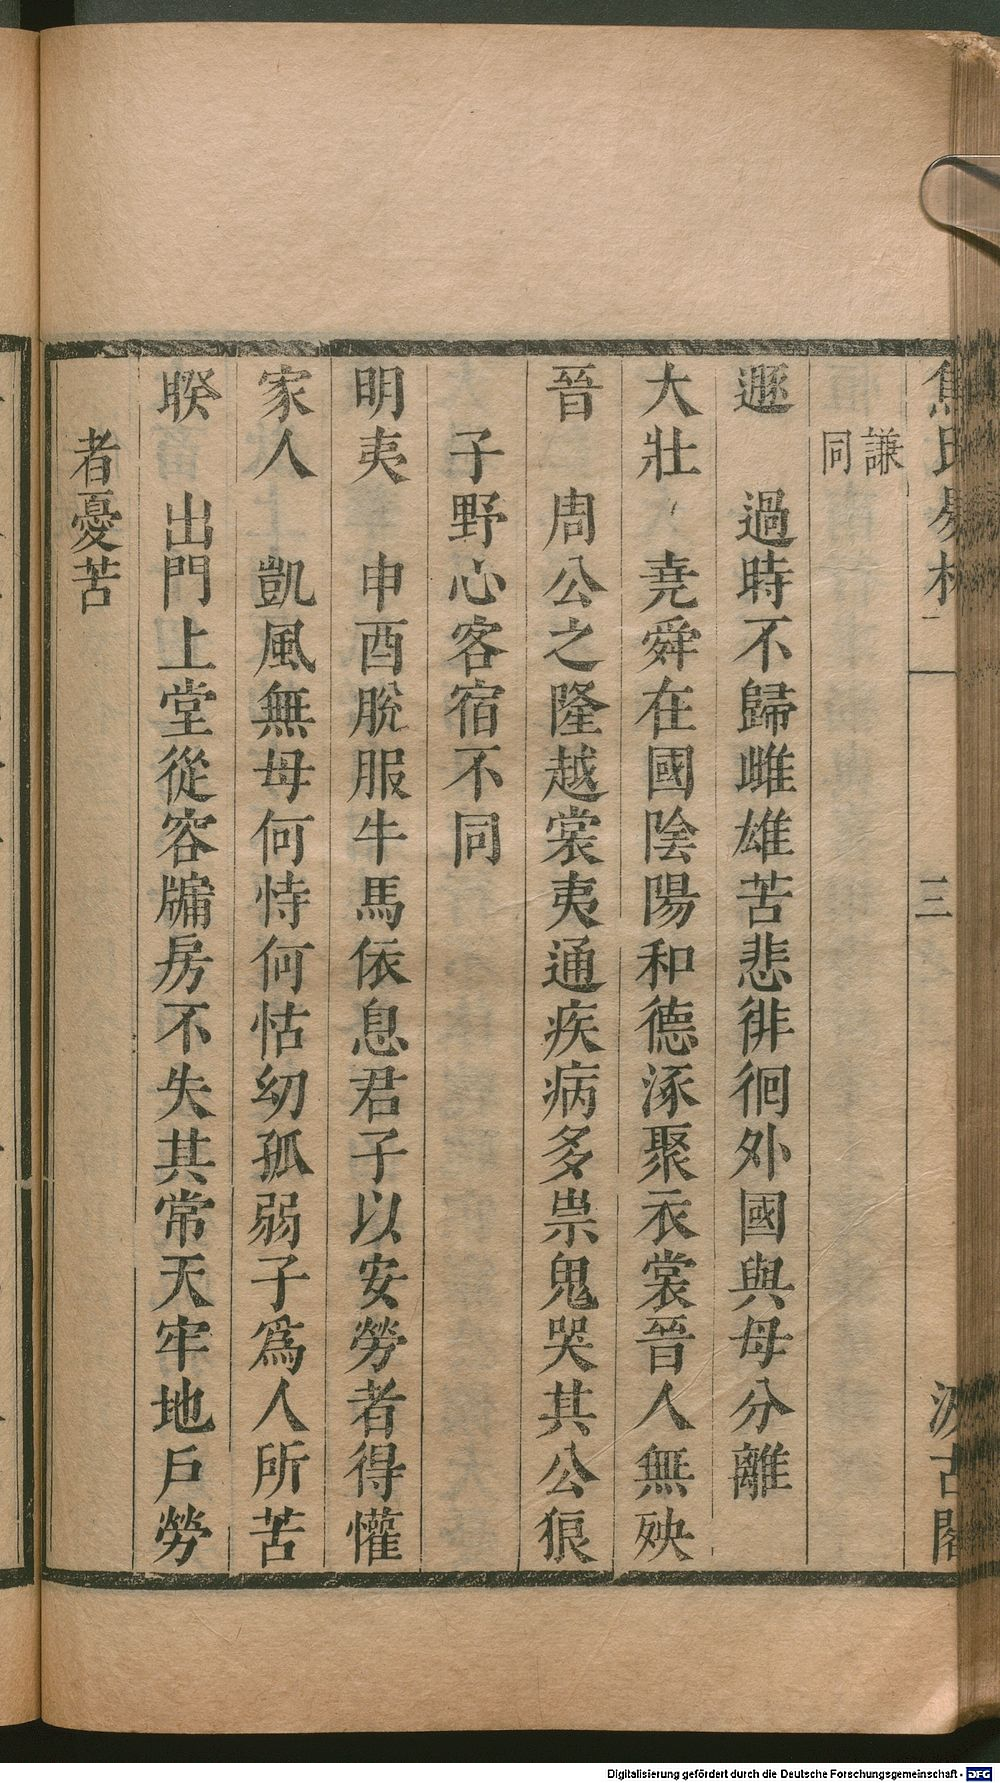 謙
同
遯 過時不歸雌雄苦悲徘徊外國與母分離
大壯 堯舜在國陰陽和德涿聚衣裳晉人無殃
晉 周公之隆越裳夷通疾病多祟鬼哭其公狼
子野心客宿不同
明夷 申酉脫服牛馬依息君子以安勞者得懽
家人 凱風無母何恃何怙幼孤弱子爲人所苦
睽 出門上堂從容牖房不失其常天牢地戶勞
者憂苦
三
Digitalisierung gefördert durch die Deutsche Forschungsgemeinschaft - DFG